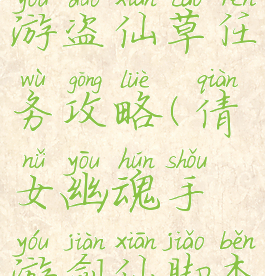 yóu dào xiān cǎo rèn
游盗仙草任
wù gōng lüè qiàn
务攻略(倩
nǚ yōu hún shǒu
女幽魂手
yóu jiàn xiān jiǎo běn
游剑仙脚本